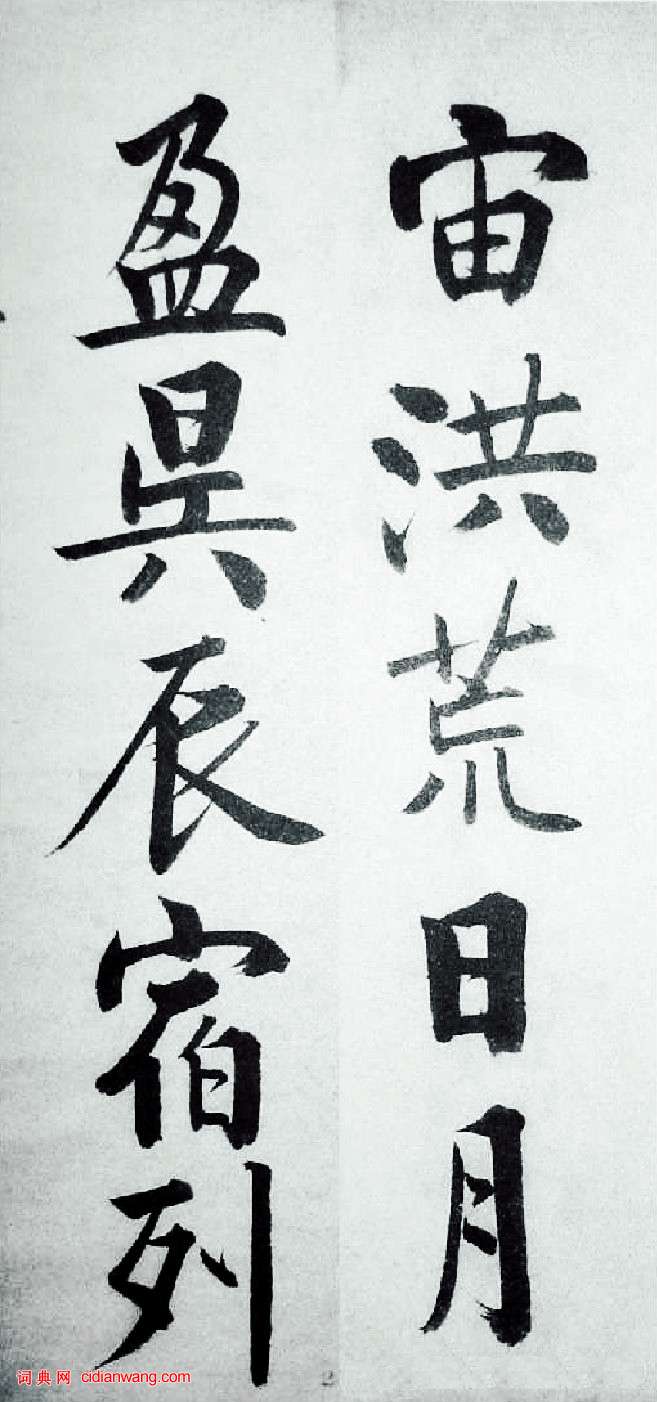 宙洪荒日月
盈昃辰宿列
词典网 cidianwang.com
2